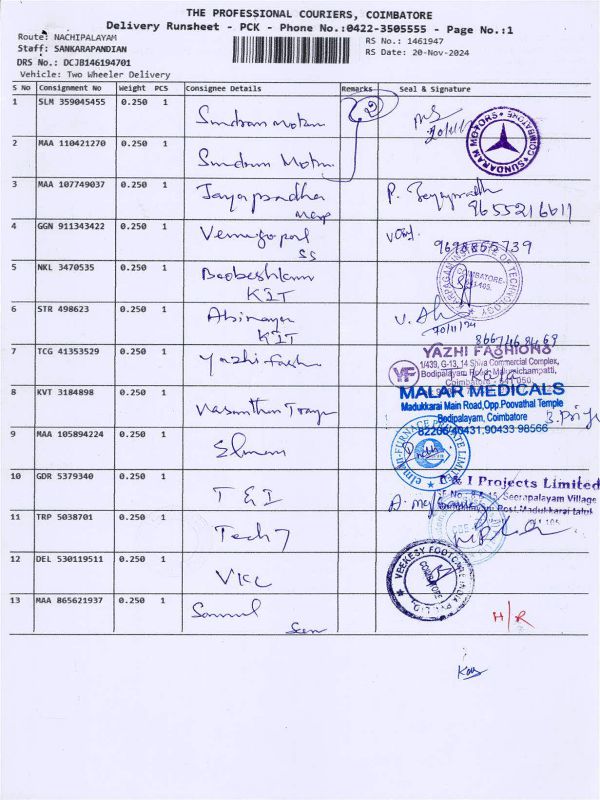 THE PROFESSIONAL COURIERS, COIMBATORE
Delivery Runsheet - PCK - Phone No.:0422-3505555 - Page No.:1
Route: NACHIPALAYAM
Staff: SANKARAPANDIAN
RS No.: 1461947
RS Date: 20-Nov-2024
DRS No.: DCJB146194701
Vehicle: Two Wheeler Delivery
S No Consignment No Weight PCS Consignee Details Remarks Seal & Signature
1 SLM 359045455 0.250 1 Sundram motors 2
20/11/24
SUNDARAM MOTORS COIMBATORE
2 MAA 110421270 0.250 1 Sundram Motors
3 MAA 107749037 0.250 1 Jayapradha P. Jayapradha
9655216611
4 GGN 911343422 0.250 1 Venugopal
9698855739
5 NKL 3470535 0.250 1 KIT
KARPAGAM INSTITUTE OF TECHNOLOGY
COIMBATORE-
641-105.
6 STR 498623 0.250 1 Abinaya
KIT
20/11/24
8667468469
7 TCG 41353529 0.250 1 Yazhi
YAZHI FASHIONS
YF
1/439, G-13, 14 Shiva Commercial Complex,
Bodipalayam Road, Malumichampatti,
Coimbatore - 641 050.
8 KVT 3184898 0.250 1 Vasantha
MALAR MEDICALS
Madukkarai Main Road,Opp.Poovathal Temple
Bodipalayam, Coimbatore
82206/40431,90433 98566
9 MAA 105894224 0.250 1 Elman
elman-FURNACE PRIVATE LIMITED
10 GDR 5379340 0.250 1 T & I
& I Projects Limited
Seerapalayam Village
Post,Madukkarai taluk
11 TRP 5038701 0.250 1 Tech 7
12 DEL 530119511 0.250 1 VKC
VEEKESY FOOTCARE INDIA PVT. LTD.
COIMBATORE
13 MAA 865621937 0.250 1
H/R